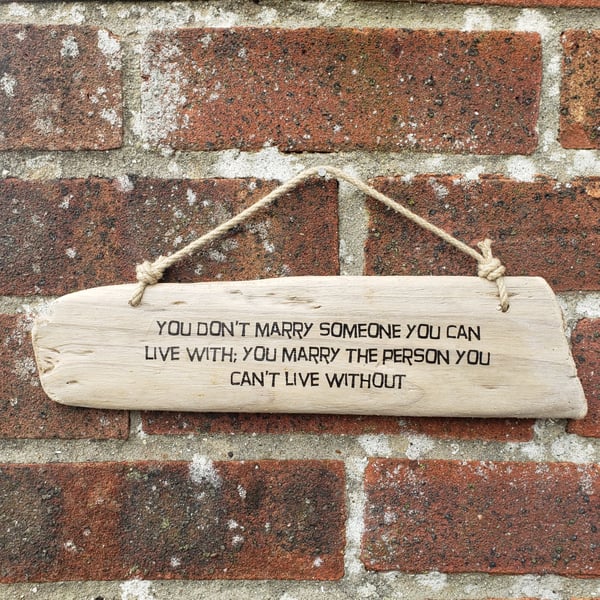 YOU DON'T MARRY SOMEONE YOU CAN
LIVE WITH; YOU MARRY THE PERSON YOU
CAN'T LIVE WITHOUT